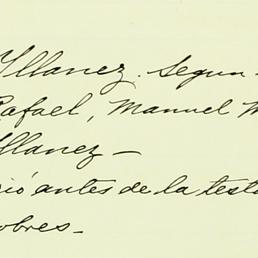 Yllanez. Segun
Rafael, Manuel M
Yllanez —
ió antes de la testa
obres.